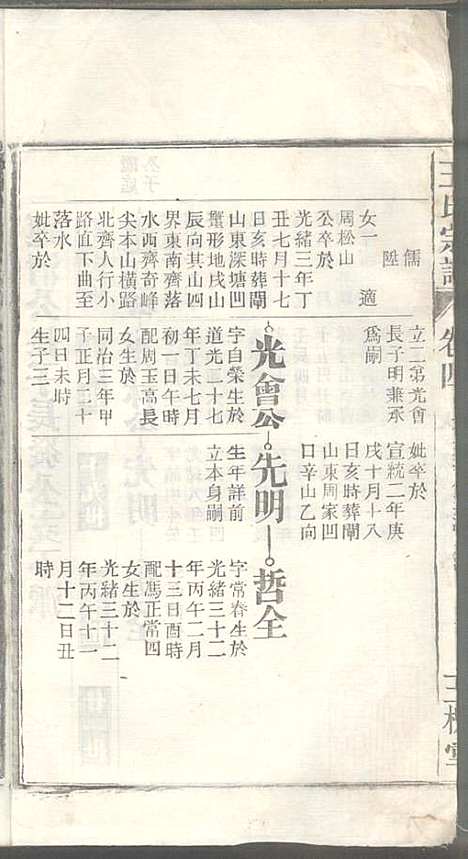 王氏宗譜 卷四 三槐堂
儒
陞
女一 適
周松山
公卒於
光緒三年丁
丑七月十七
日亥時葬閙
山東深塘凹
蟹形地戌山
辰向其山四
界東南齊落
水西齊奇峰
尖本山橫路
北齊人行小
路直下曲至
落水
妣卒於
立二第光會
長子明兼承
爲嗣
妣卒於
宣統二年庚
戌十月十八
日亥時葬閙
山東周家凹
口辛山乙向
光會公 先明 哲全
字自榮生於
道光二十七
年丁未七月
初一日午時
配周玉高長
女生於
同治三年甲
子正月二十
四日未時
生子三
生年詳前
立本身嗣四
字常春生於
光緒三十二
年丙午二月
十三日酉時
配馮正常四
女生於
光緒三十二
年丙午十一
月十二日丑
時